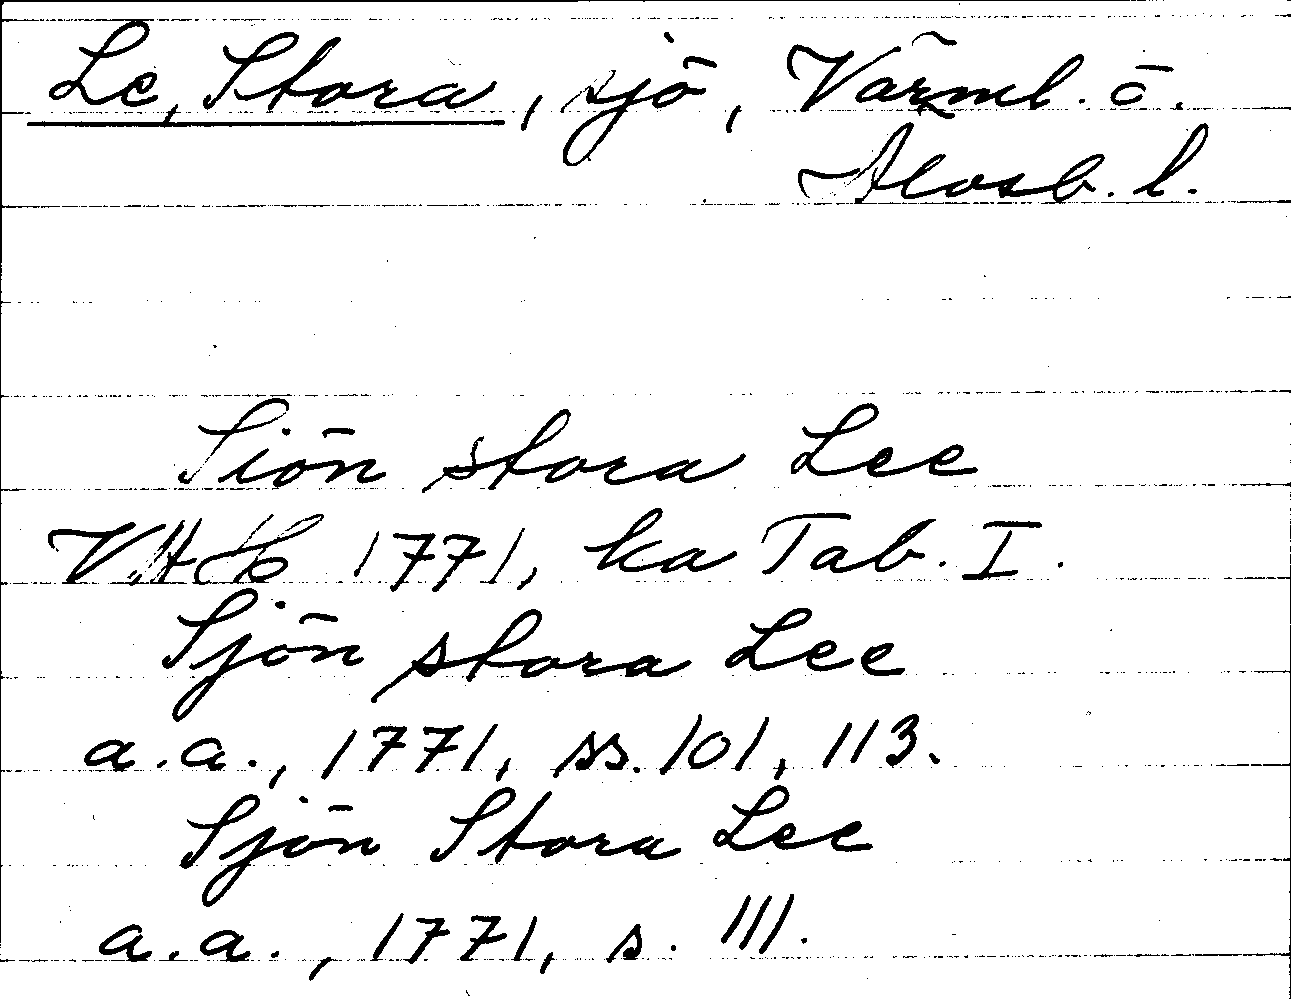 Le, Stora, sjö, Värml. o.
Älvsb. l.
Siön stora Lee
VAH 1771, ka Tab. I.
Sjön stora Lee
a.a., 1771, ss. 101, 113.
Sjön Stora Lee
a.a., 1771, s. 111.